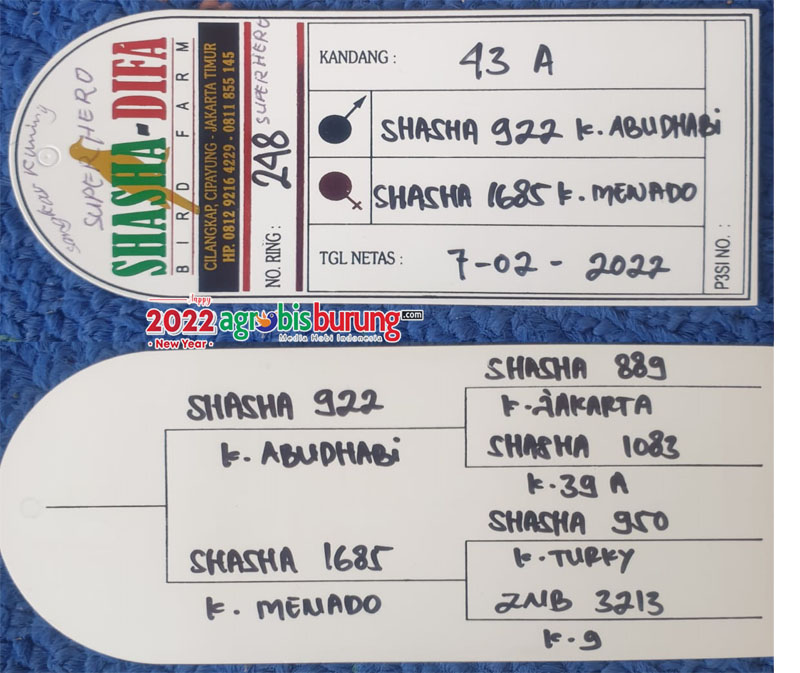 Sangkar Kuning
SUPER HERO
SHASHA-DIFA
BIRD FARM
CILANGKAP CIPAYUNG - JAKARTA TIMUR
HP. 0812 9216 4229 - 0811 855 145
NO. RING : 248 SUPERHERO
KANDANG : 43 A
SHASHA 922 K. ABUDHABi
SHASHA 1685 K. MENADO
TGL NETAS : 7-02-2022
P3SI NO. :
happy
2022 agrobisburung.com
• New Year • Media Hobi Indonesia
SHASHA 889
K. JAKARTA
SHASHA 922
K. ABUDHABi
SHASHA 1083
K. 39 A
SHASHA 950
K. TURKY
SHASHA 1685
K. MENADO
ZNB 3213
K-9